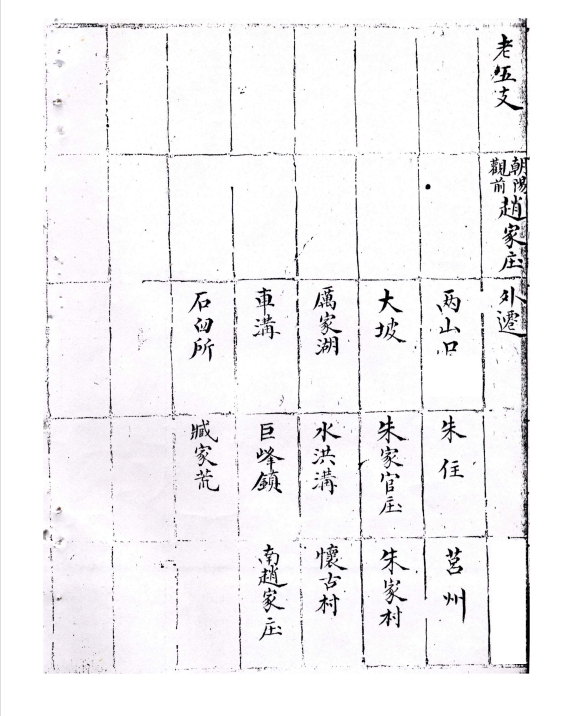 老伍支
朝陽觀前趙家庄
外遷
两山口
朱㑏
莒州
大坡
朱家官庄
朱家村
厲家湖
水洪溝
懷古村
車溝
巨峰鎮
南趙家庄
石臼所
臧家荒